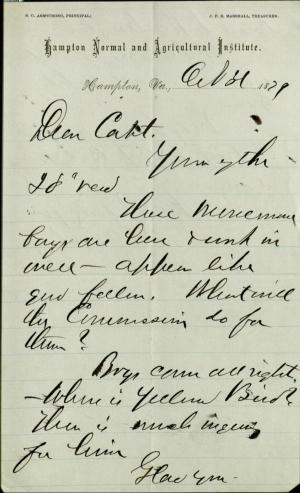 S. C. ARMSTRONG, PRINCIPAL; J. F. B. MARSHALL, TREASURER.
Hampton Normal and Agricultural Institute.
Hampton, Va., Oct 31 1879
Dear Capt.
Yours of the
28" recd
These
boys are here & work in
well – appear like
good fellows. What will
the Commission do for
them?
Boys came all right
– Where is Yellow Bird?
There is much inquiry
for him
Glad you